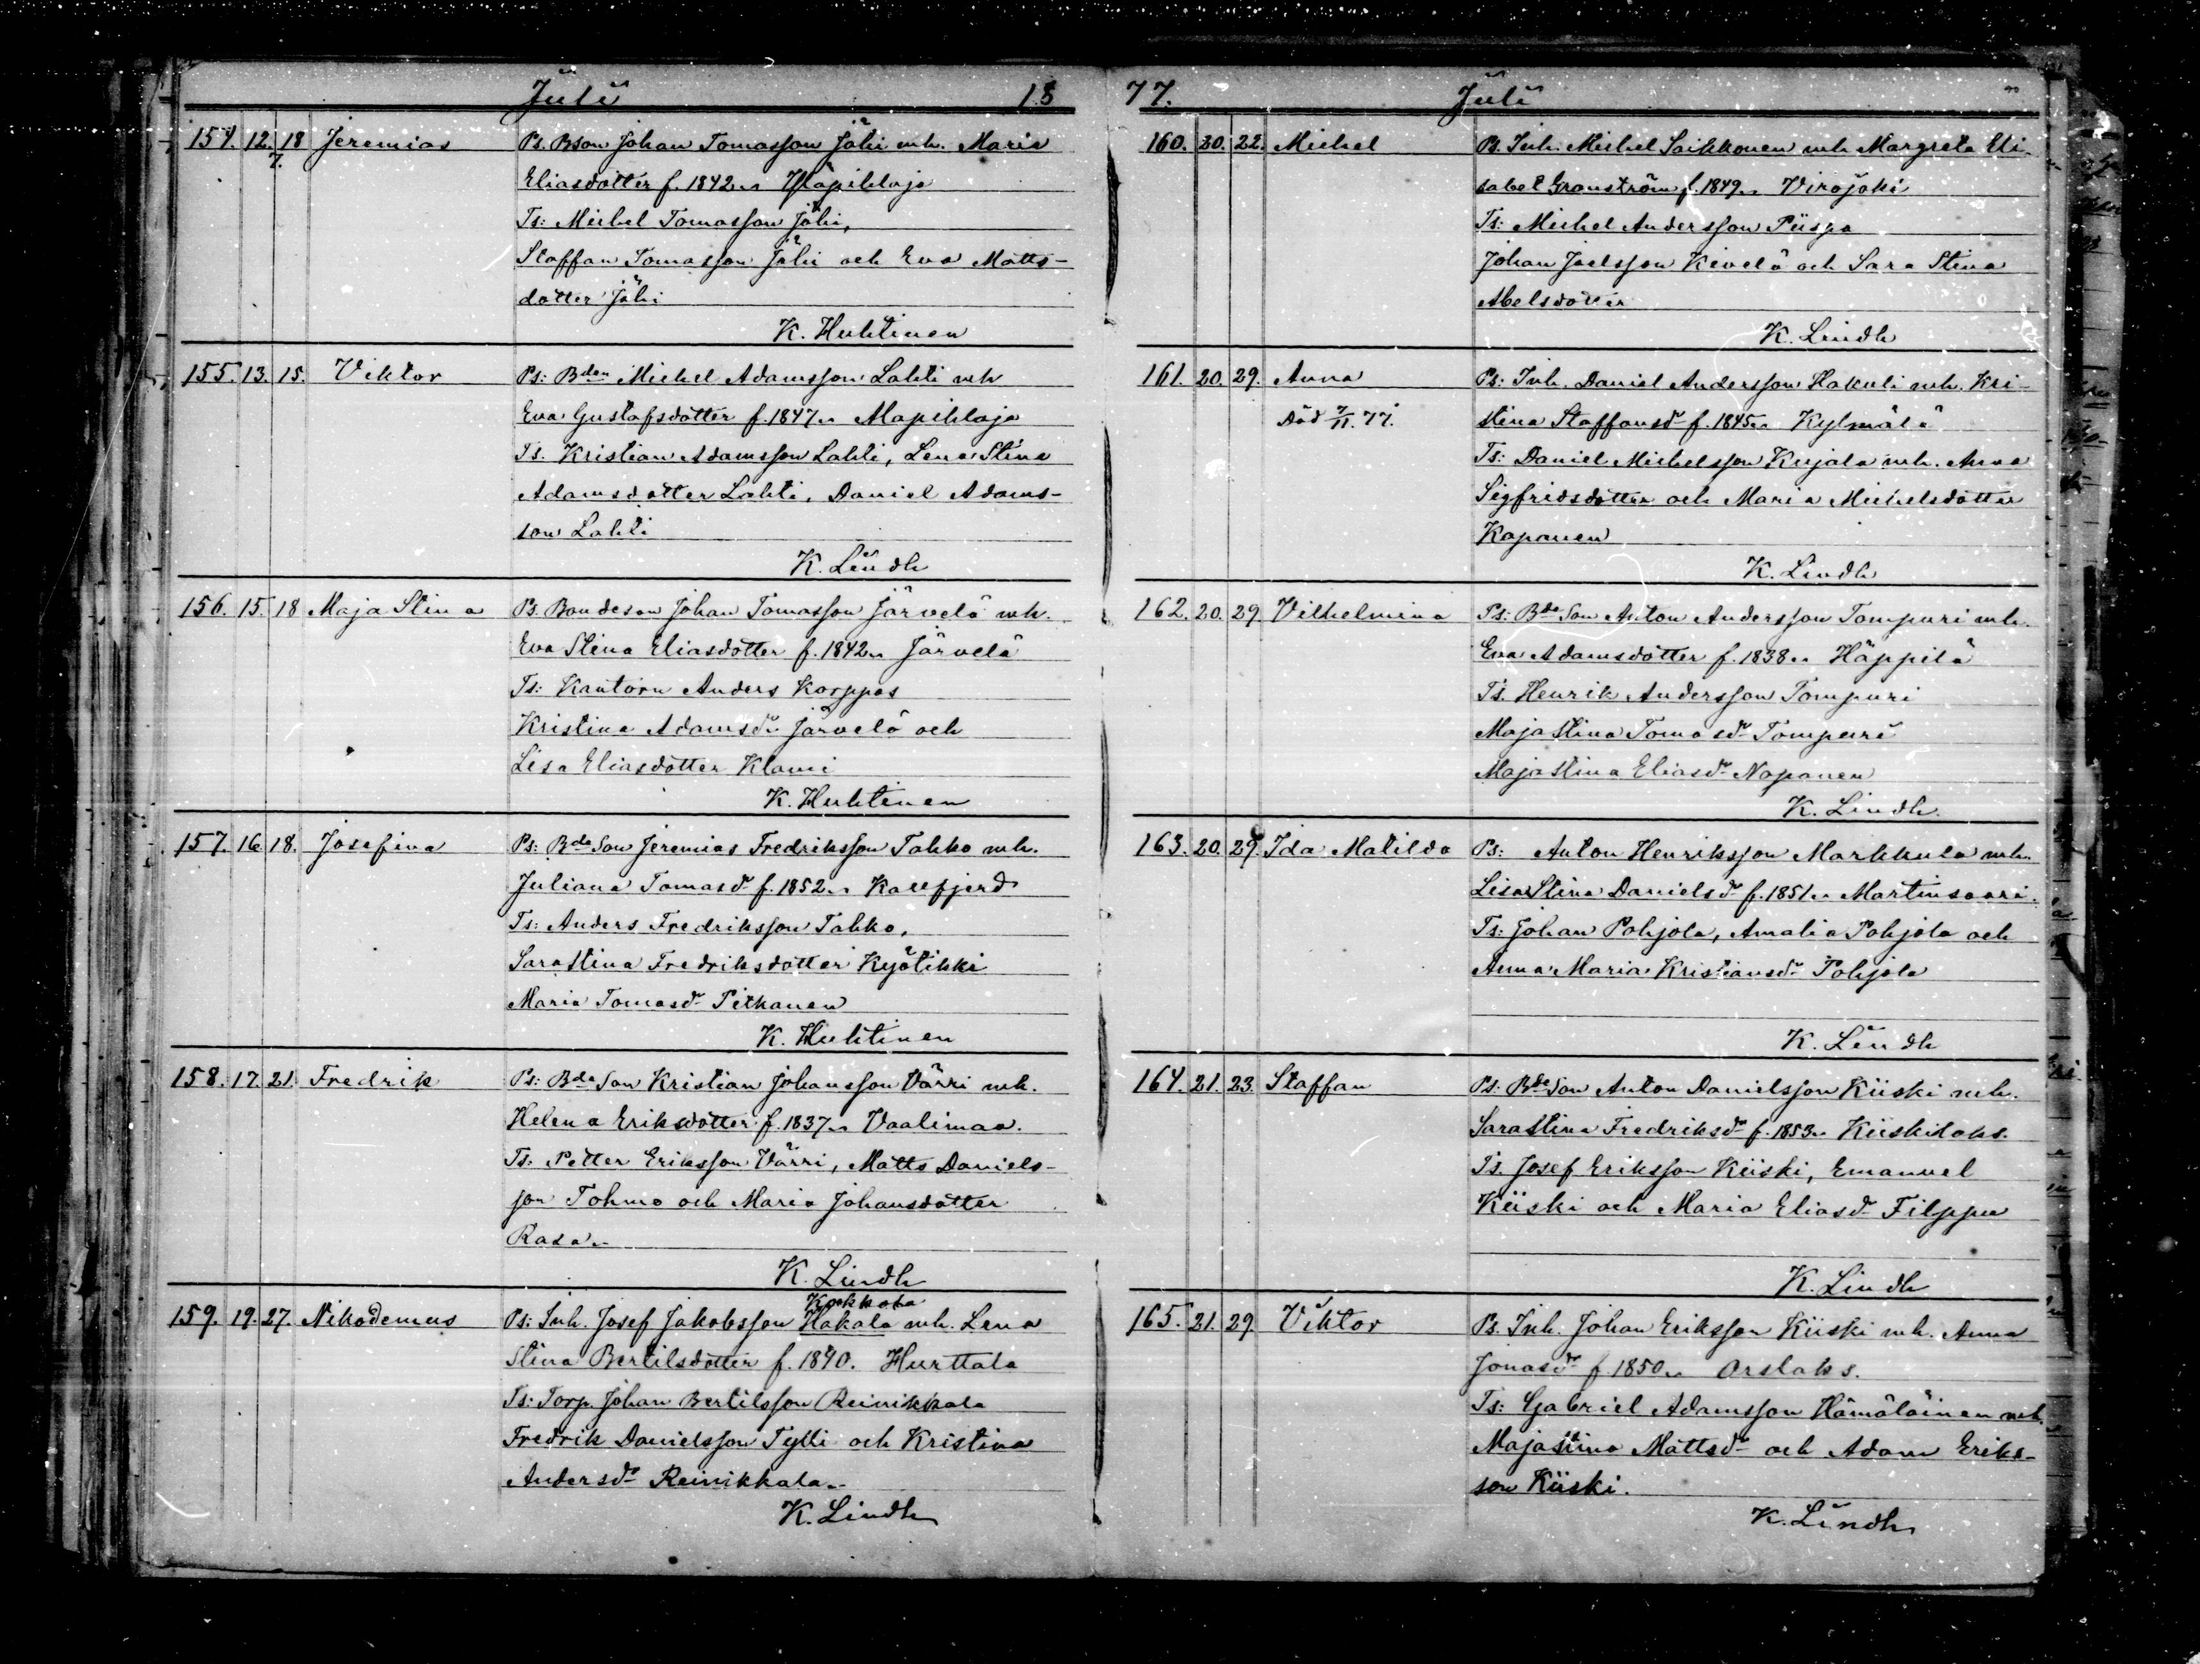 Juli 18
154. 12. 18 Jeremias Ps. Bson Johan Tomasson Jähi mh. Maria
7. Eliasdotter f. 1842.
Ts: Michel Tomasson Jähi,
Staffan Tomasson Jähi och Eva Matts-
dotter Jähi
K. Huhtinen
155. 13. 15. Viktor Ps: Bden Michel Adamsson Lahti mh
Eva Gustafsdotter f. 1847. Mäpihlaja
Ts. Kristian Adamsson Lahti, Lena Stina
Adamsdotter Lahti, Daniel Adams-
son Lahti
K. Lindh
156. 15. 18 Maja Stina Ps. Bondeson Johan Tomasson Järvelä mh.
Eva Stina Eliasdotter f. 1842. Järvelä
Ts: Kantorn Anders Korppas
Kristina Adamsdr Järvelä och
Lisa Eliasdotter Klami
K. Huhtinen
157. 16. 18. Josefina Ps: Bde Son Jeremias Fredriksson Tahko mh.
Juliana Tomasdr f. 1852.
Ts: Anders Fredriksson Tahko,
Sarastina Fredriksdotter Kyötikki
Maria Tomasdr Pitkanen
K. Huhtinen
158. 17. 21. Fredrik Ps: Bde Son Kristian Johansson Värri mh.
Helena Eriksdotter f. 1837. Vaalimaa.
Ts: Petter Eriksson Värri, Matts Daniels-
son Tohmo och Maria Johansdotter
Rasa.
K. Lindh
Korkkola
159. 19. 27. Nikodemus Ps: Inh. Josef Jakobsson Hakala mh. Lena
Stina Bertilsdotter f. 1840. Hurttala
Ts: Torp. Johan Bertilsson Reinikkala
Fredrik Danielsson Tylli och Kristina
Andersdr Reinikkala.
K. Lindh
77. Juli
160. 20. 22. Michel Ps. Inh. Michel Saikkonen mh Margreta Eli-
sabet Granström f. 1849. Virojoki
Ts: Michel Andersson Piispa
Johan Joelsson Kivelä och Sara Stina
Abelsdotter
K. Lindh
161. 20. 29. Anna Ps: Inh. Daniel Andersson Hakuli mh. Kri-
Död 7/11. 77. stina Staffansdr f. 1845. Kylmälä
Ts: Daniel Michelsson Kujala mh. Anna
Sigfridsdotter och Maria Michelsdotter
Kaponen
K. Lindh
162. 20. 29 Vilhelmina Ps: Bde Son Anton Andersson Tompuri mh.
Eva Adamsdotter f. 1838. Häppilä
Ts. Henrik Andersson Tompuri
Majastina Tomasdr Tompuri
Majastina Eliasdr Naponen
K. Lindh.
163. 20. 29. Ida Matilda Ps: Anton Henriksson Markkula mh.
Lisa Stina Danielsdr f. 1851. Martinsaari.
Ts: Johan Pohjola, Amalia Pohjola och
Anna Maria Kristiansdr Pohjola
K. Lindh
164. 21. 23. Staffan Ps. Bde Son Anton Danielsson Kiiski mh.
Sarastina Fredriksdr f. 1853. Kiiskilaks.
Ts. Josef Eriksson Kiiski, Emanuel
Kiiski och Maria Eliasdr Filppu
K. Lindh
165. 21. 29. Viktor Ps. Inh. Johan Eriksson Kiiski mh. Anna
Jonasdr f 1850. Orslaks.
Ts: Gabriel Adamsson Hämäläinen mh.
Majastina Mattsdr och Adam Eriks-
son Kiiski.
K. Lindh